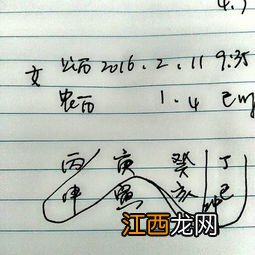 女 公历 2016.2.11 9:35
农历 1.4 巳时
丙 庚 癸 丁
申 寅 亥 巳
江西龙网